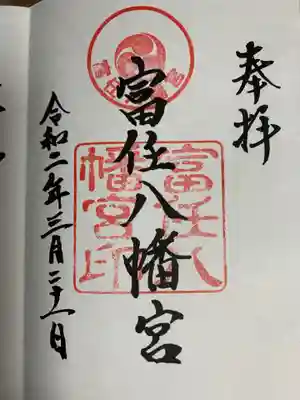 奉拝
富住八幡宮
富住八
幡宮印
令和二年三月二十一日